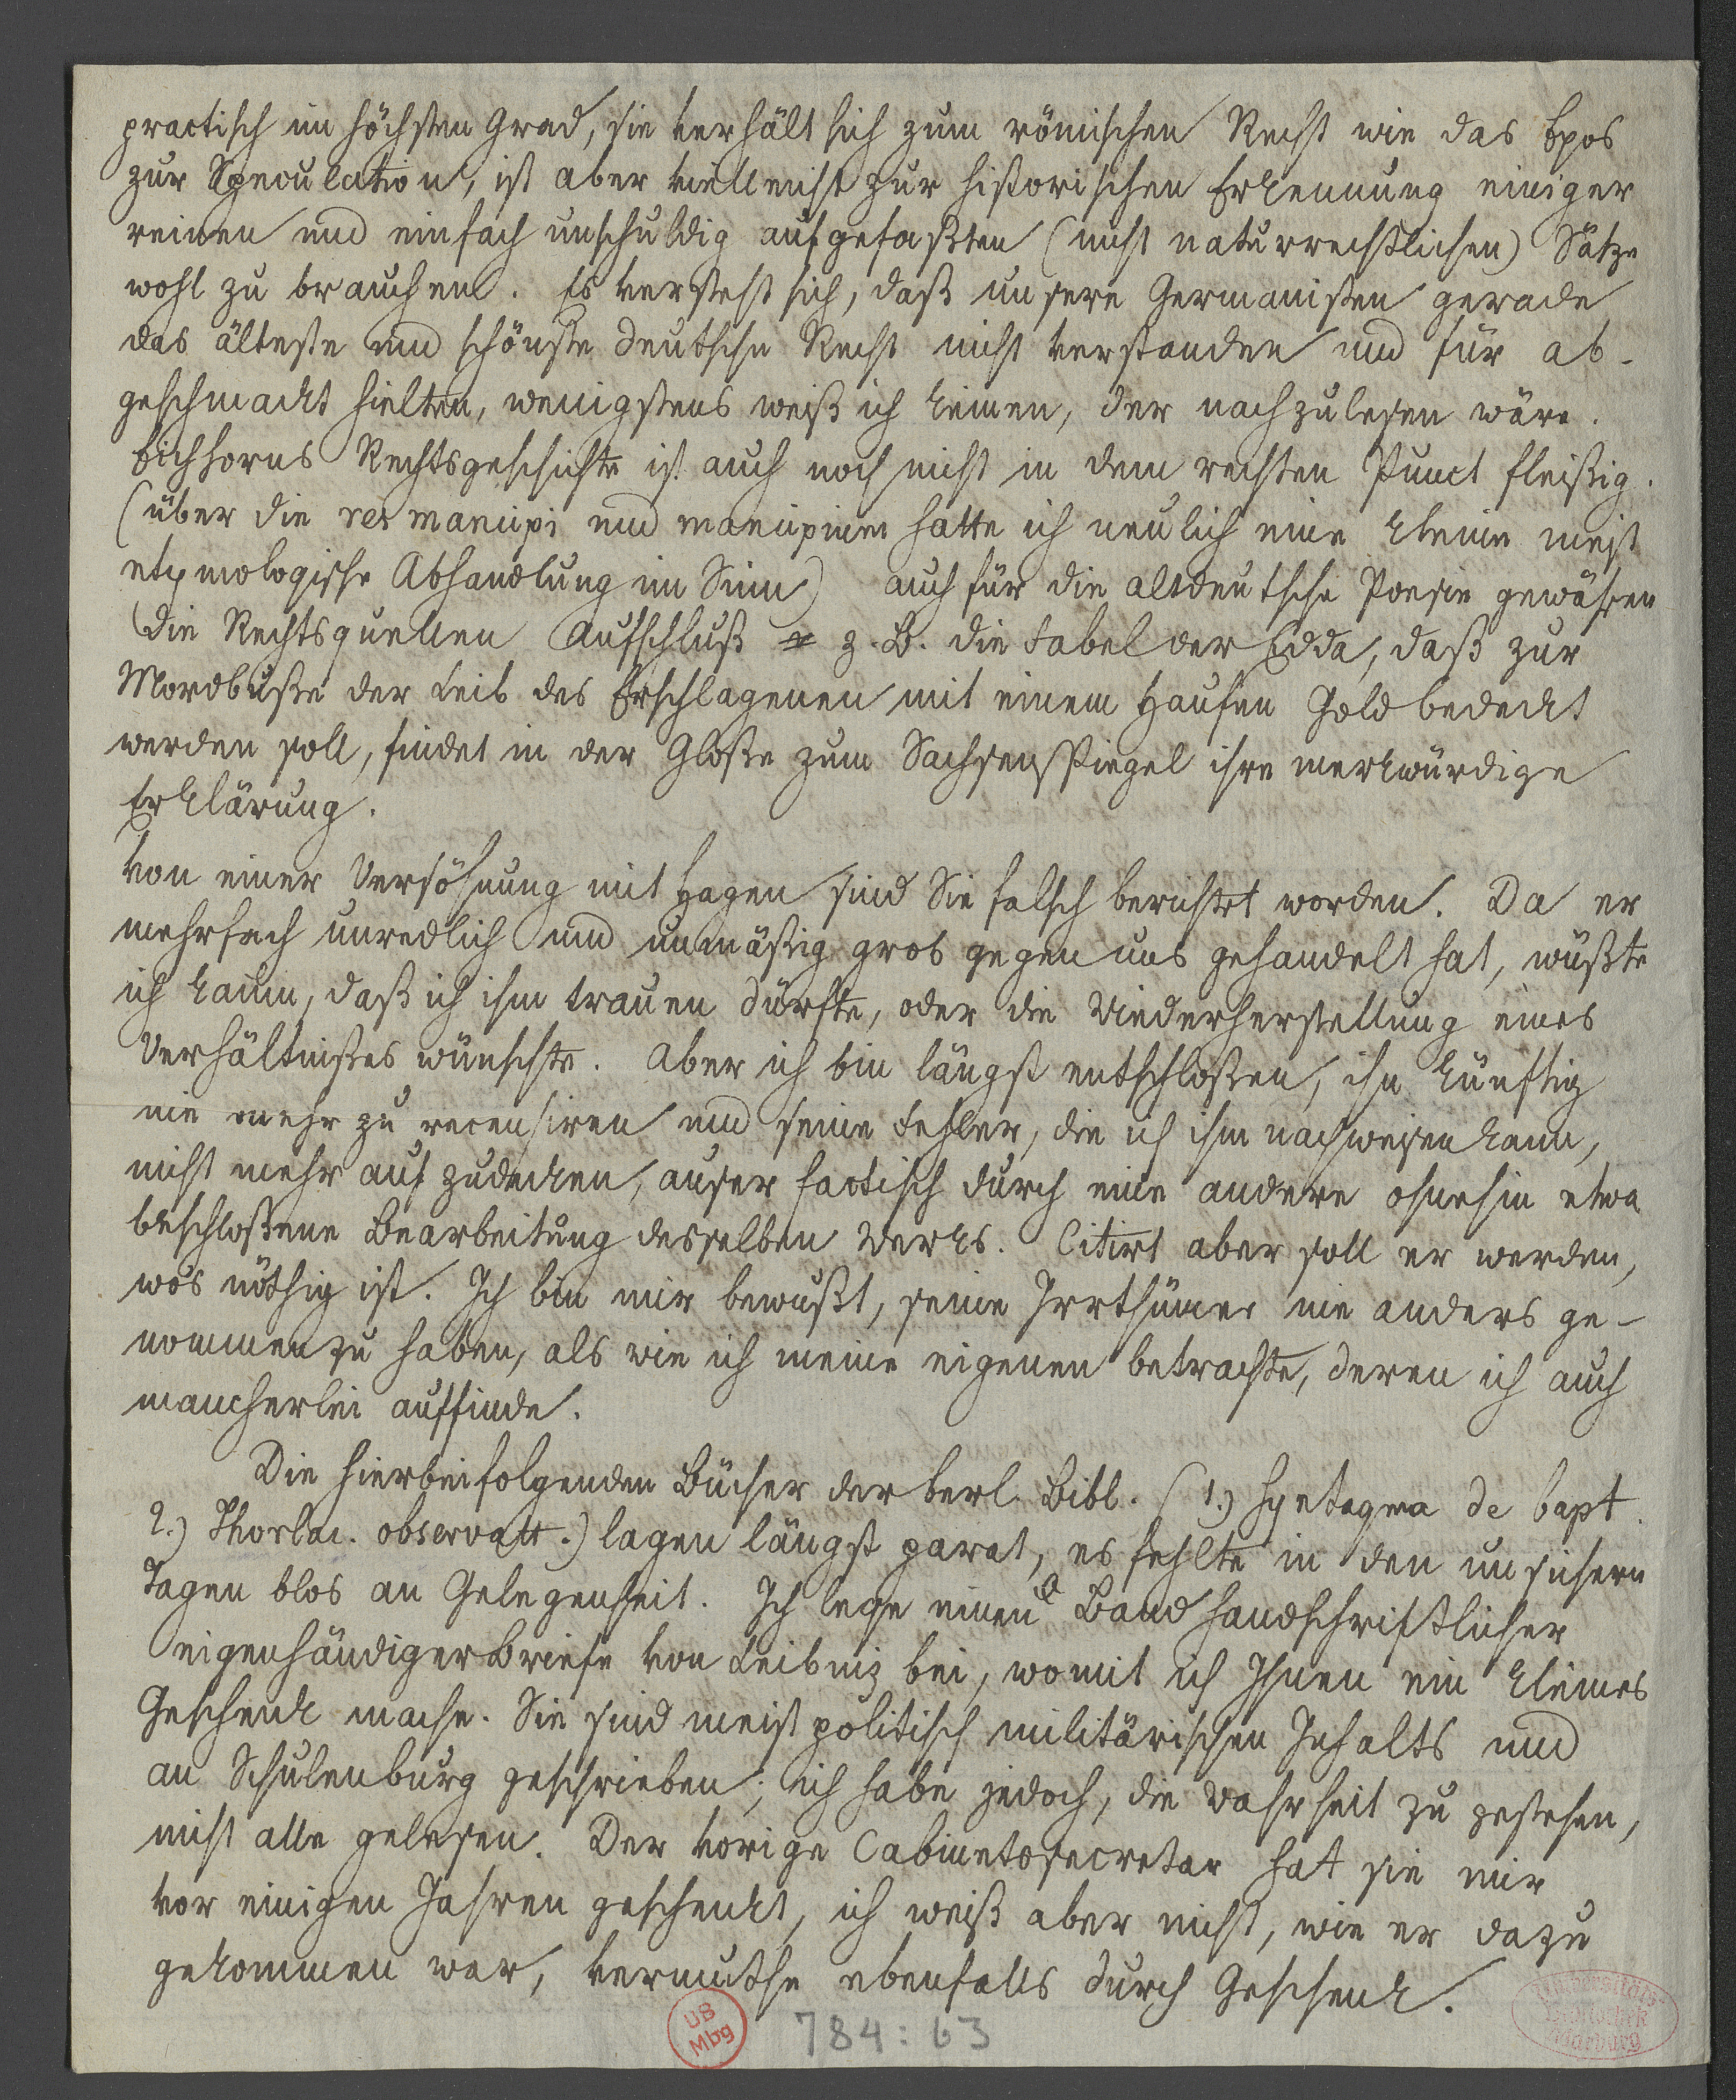 practisch im höchsten Grad, sie verhält sich zum römischen Recht wie das Epos
zur Speculation, ist aber vielleicht zur historischen Erkennung einiger
reinen und einfach unschuldig aufgefaßten (nicht naturrechtlichen) Sätze
wohl zu brauchen. Es versteht sich, daß unsere Germanisten gerade
das älteste und schönste deutsche Recht nicht verstanden und für ab-
geschmackt hielten, wenigstens weiß ich keinen, der nachzulesen wäre.
Eichhorns Rechtsgeschichte ist auch noch nicht in dem rechten Punct fleißig.
(über die res mancipi und mancipium hatte ich neulich eine kleine meist
etymologische Abhandlung im Sinn) auch für die altdeutsche Poesie gewähren
die Rechtsquellen Aufschluß z. B. die Fabel der Edda, daß zur
Mordbuße der Leib des Erschlagenen mit einem Haufen Gold bedeckt
werden soll, findet in der Gloße zum Sachsenspiegel ihre merkwürdige
Erklärung.
Von einer Versöhnung mit Hagen sind Sie falsch berichtet worden. Da er
mehrfach unredlich und unmäßig grob gegen uns gehandelt hat, wüßte
ich kaum, daß ich ihm trauen dürfte, oder die Wiederherstellung eines
Verhältnißes wünschte. Aber ich bin längst entschloßen, ihn künftig
nie mehr zu recensiren und seine Fehler, die ich ihm nachweisen kann,
nicht mehr aufzudecken, auser factisch durch eine andere ohnehin etwa
beschloßene Bearbeitung desselben Werks. Citirt aber soll er werden,
wos nöthig ist. Ich bin mir bewußt, seine Irrthümer nie anders ge-
nommen zu haben, als wie ich meine eigenen betrachte, deren ich auch
mancherlei auffinde.
Die hierbeifolgenden Bücher der berl. Bibl. (1.) Syntagma de bapt.
2.) Thorlac. observatt.) lagen längst parat, es fehlte in den unsichern
Tagen blos an Gelegenheit. Ich lege einen Band handschriftlicher
eigenhändiger Briefe von Leibniz bei, womit ich Ihnen ein kleines
Geschenk mache. Sie sind meist politisch militärischen Inhalts und
an Schulenburg geschrieben; ich habe jedoch, die Wahrheit zu gestehen,
nicht alle gelesen. Der vorige Cabinetssecretar hat sie mir
vor einigen Jahren geschenkt, ich weiß aber nicht, wie er dazu
gekommen war, vermuthe ebenfalls durch Geschenk.
UB
Mbg
784:63
Universitäts-
Bibliothek
Marburg